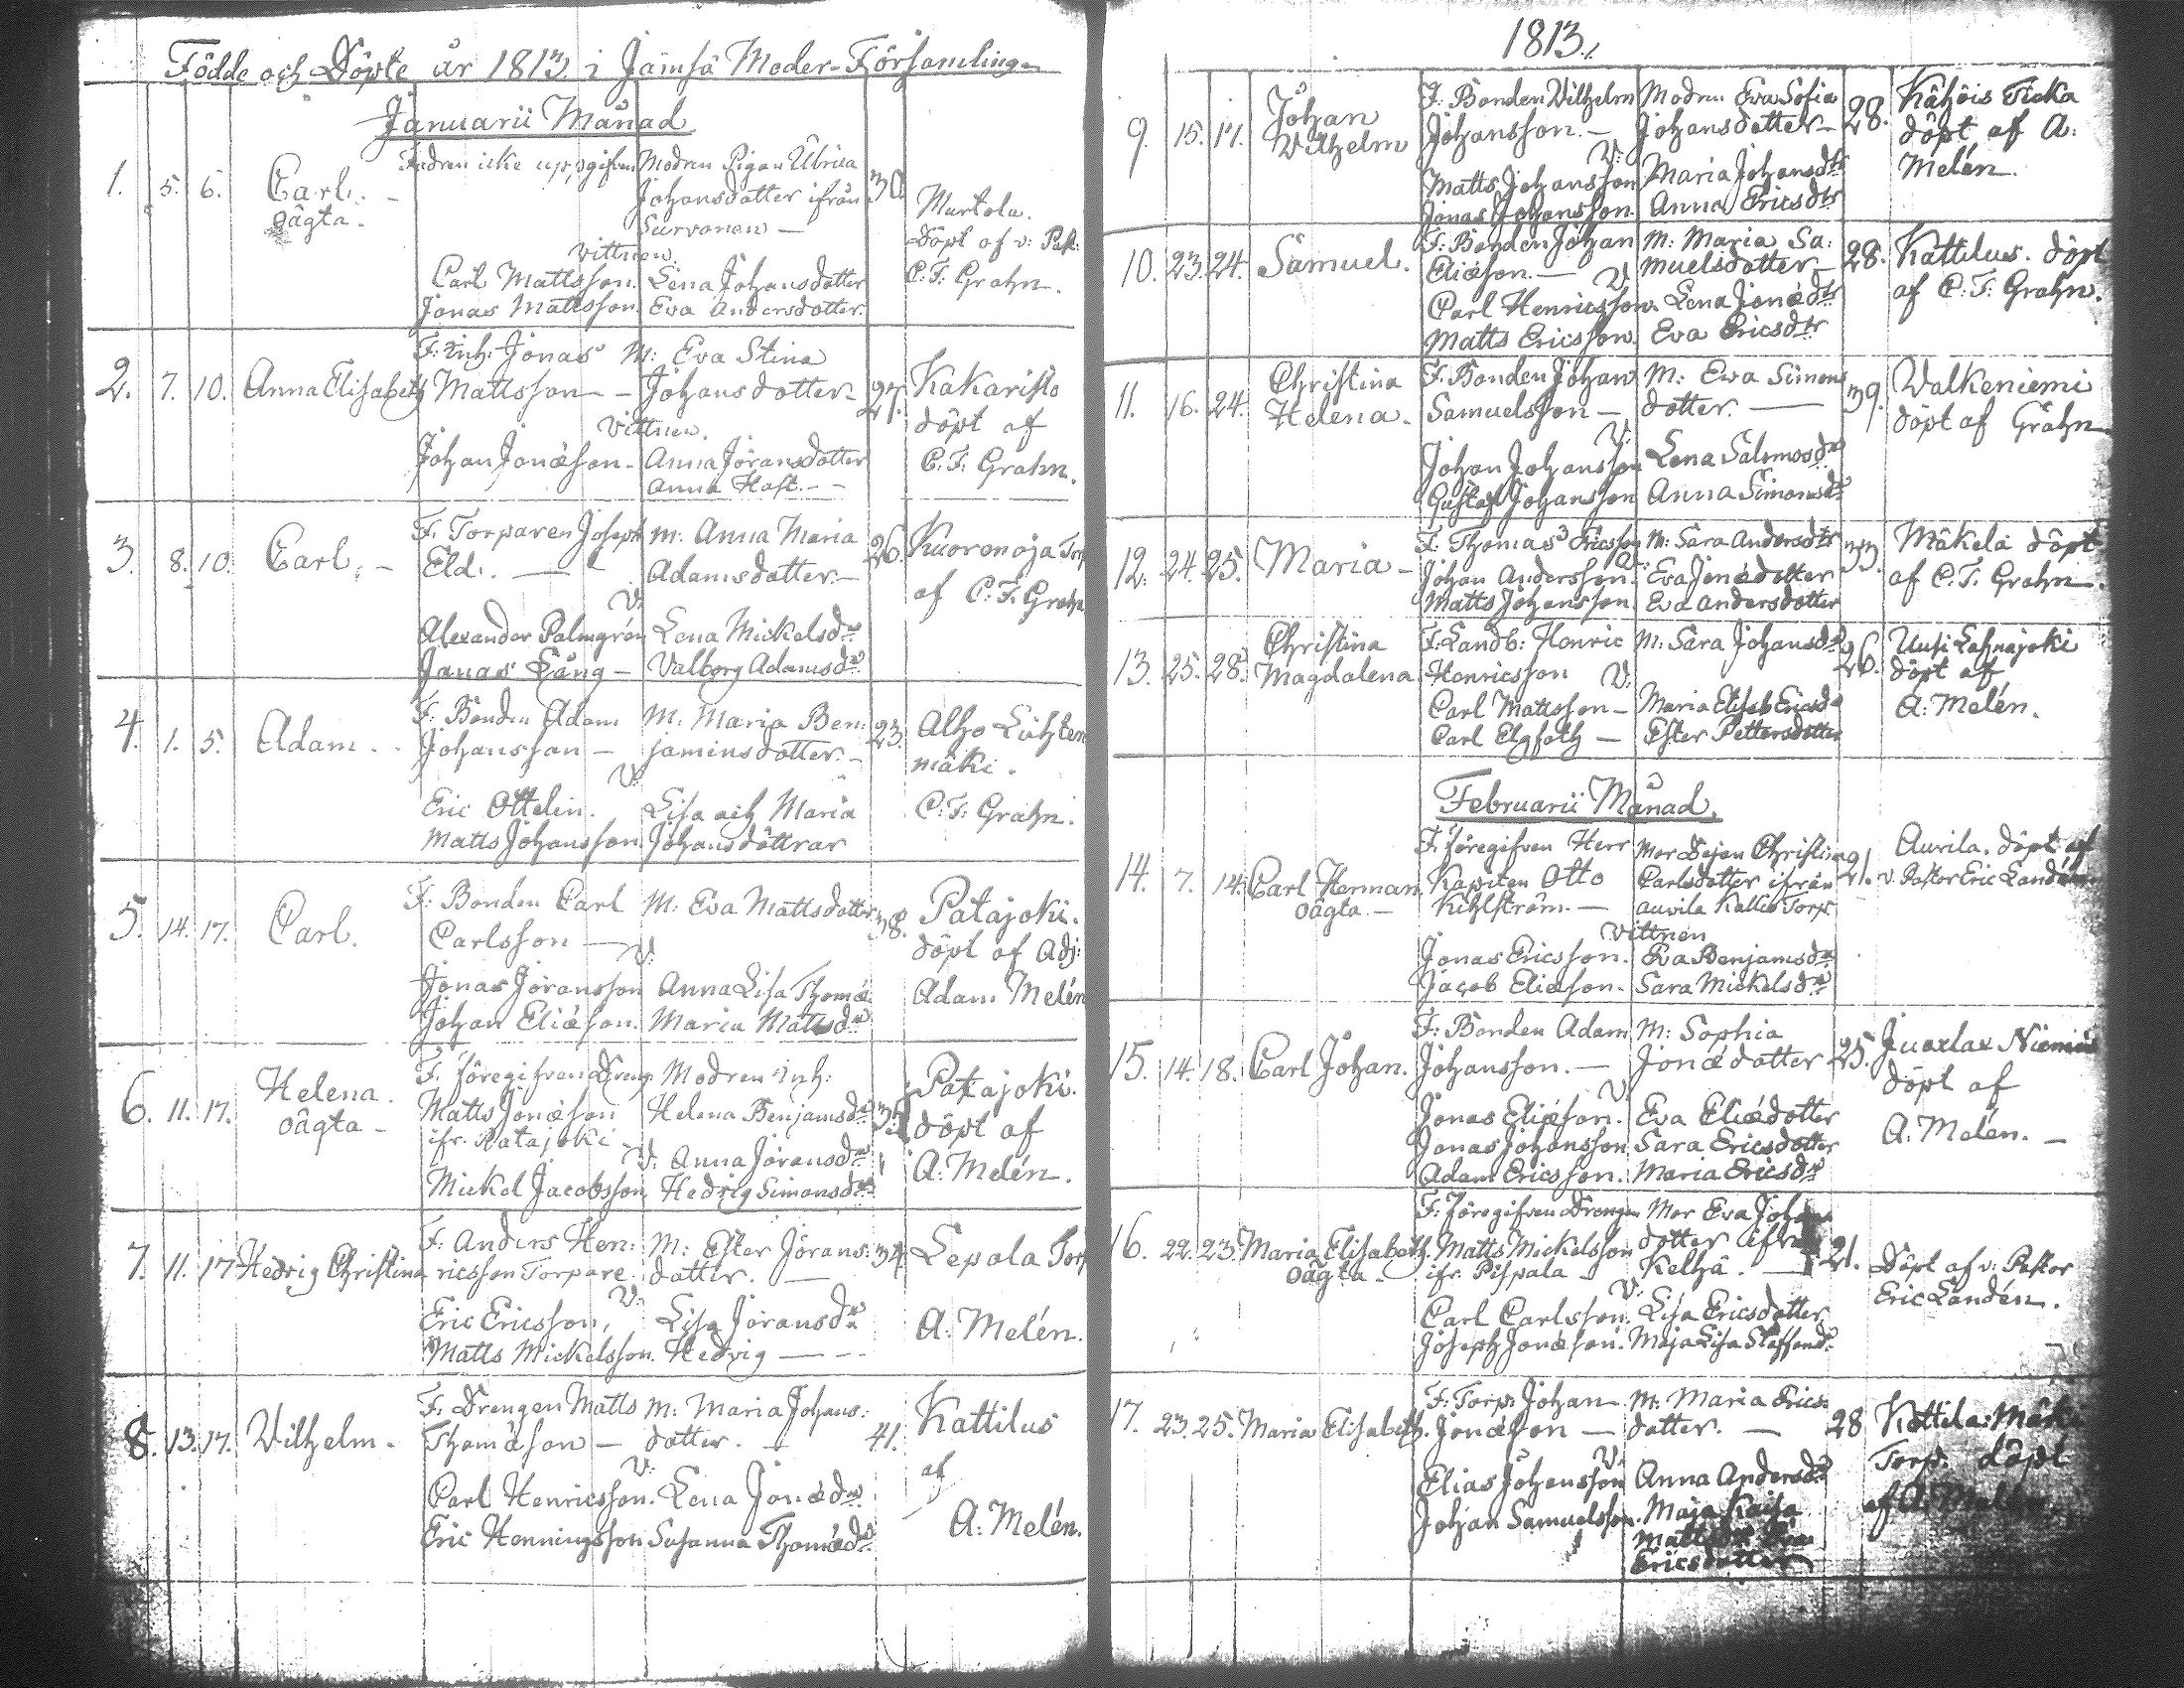 Födde och Döpte år 1813 i Jämsä Moder-Församling
Januarii Månad
1. 5. 6. Carl. oägta. Fadren icke uppgifven Modren Pigan Ulrica 30
Johansdotter ifrån Murtola.
Survonen — Döpt af v: Past:
Vittnen. C: F: Grahn.
Carl Mattsson. Lena Johansdotter
Jonas Mattsson. Eva Andersdotter.
2. 7. 10. Anna Elisabeth F: Inh: Jonas M: Eva Stina
Mattsson — Johansdotter 27. Kakaristo
Vittnen. döpt af
Johan Jonæson. Anna Jöransdotter C: F: Grahn.
Anna Hast. —
3. 8. 10. Carl. — F. Torparen Joseph M: Anna Maria 26. Kuoremoja Torp
Eld. — Adamsdotter. — af C: F: Grahn
V:
Alexander Palmgrén Lena Mickelsdr
Jonas Lång — Valborg Adamsdr
4. 1. 5. Adam. F: Bonden Adam M: Maria Ben: 23. Alho
Johansson — jaminsdotter. — mäki.
V:
Eric Ottelin. Lisa och Maria C: F: Grahn.
Matts Johansson. Johansdöttrar
5. 14. 17. Carl. F: Bonden Carl M: Eva Mattsdotter 38. Patajoki.
Carlsson — döpt af Adj:
V: Adam Melén
Jonas Jöransson Anna Lisa Thomæ
Johan Eliæson. Maria Mattsdr
6. 11. 17. Helena. oägta — F. föregifven Dreng Modren Inh: Patajoki.
Matts Jonæson Helena Benjamsdr döpt af
ifr. Patajoki A: Melén.
V: Anna Jöransdr
Mickel Jacobsson Hedvig Simonsdr
7. 11. 17 Hedvig Christina F: Anders Hen: M: Ester Jörans: 34. Lepola Torp
ricsson Torpare dotter. —
V:
Eric Ericsson, Lisa Jöransdr A: Melén.
Matts Mickelsson. Hedvig —
8. 13. 17. Vilhelm. F: Drengen Matts M: Maria Johans: 41. Kattilus
Thomæson — dotter. — af
V: A: Melén.
Carl Henricsson. Lena Jonædr
Eric Henningsson Susanna Thomædr
1813.
9. 15. 17. Johan Vilhelm F: Bonden Vilhelm Modren Eva Sofia 28. Kähöis Ticka
Johansson. — Johansdotter — döpt af A:
V: Melén.
Matts Johansson Maria Johansdtr
Jonas Johansson. Anna Ericsdtr
10. 23. 24. Samuel. F: Bonden Johan M: Maria Sa: 28. Kattilus. döpt
Eliæson. — muelsdotter — af C: F: Grahn.
V:
Carl Henricsson. Lena Jonædtr
Matts Ericsson Eva Ericsdtr
11. 16. 24. Christina Helena. F. Bonden Johan M: Eva Simons 39. Walkeniemi
Samuelsson — dotter. — döpt af Grahn
V:
Johan Johansson Lena Salomosdr
Gustaf Johansson Anna Simonsdr
12. 24. 25. Maria — F: Thomas Ericsson M: Sara Andersdtr 33. Mäkelä döpt
V: af C: F: Grahn.
Johan Andersson. Eva Jonædotter
Matts Johansson. Eva Andersdotter
13. 25. 28. Christina Magdalena F: Landb: Henric M: Sara Johansdr 26. Uusi Lahnajoki
Henricsson döpt af
V: A: Melén.
Carl Mattsson — Maria Elisab Ericsdr
Carl — Ester Pettersdotter
Februarii Månad.
14. 7. 14. Carl Herman oägta. — F. föregifven Herr Mor Dejan Christina 21. Auvila. döpt af
Kapiten Otto Carlsdotter ifrån v. Pastor Eric Landén
Kihlström. — Auvila Kallio Torp.
Vittnen
Jonas Ericsson. Eva Benjamsdr
Jacob Eliæson. Sara Mickelsdr
15. 14. 18. Carl Johan. F: Bonden Adam M: Sophia 25. Juoxlax
Johansson. — Jonædotter döpt af
V: A: Melén. —
Jonas Eliæson. Eva Eliædotter
Jonas Johansson Sara Ericsdotter
Adam Ericsson. Maria Ericsdr
16. 22. 23. Maria Elisabeth. oägta — F: föregifven Drengen Mor Eva Johans 21. Döpt af v: Pastor
Matts Mickelsson dotter ifrån Eric Landén.
ifr. Pispala — Kelhä. —
V:
Carl Carlsson. Lisa Ericsdotter
Joseph Jonæson. Maja Lisa Staffansdr
17. 23. 25. Maria Elisabeth. F: Torp: Johan M: Maria Erics: 28 Kottila: Mäki
Jonæson — dotter. — Torp: döpt
V: af A: Melén
Elias Johansson Anna Andersdr
Johan Samuelsson. Maja Kaisa
Mattsdr Eva
Ericsdotter